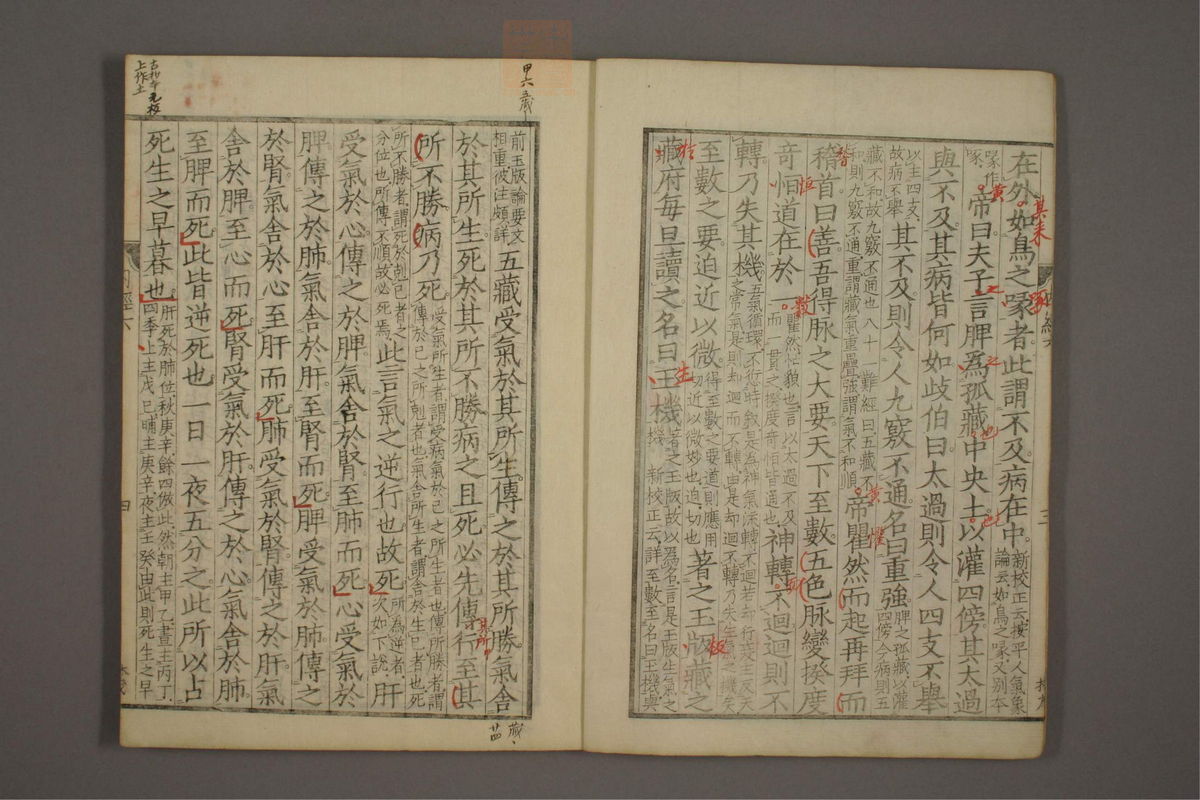 在外如鳥之喙者此謂不及病在中新校正云按平人氣象論云如鳥之喙又別本
喙作
喙帝曰夫子言脾為孤藏中央土以灌四傍其太過
與不及其病皆何如歧伯曰太過則令人四支不舉
以主四支故病不舉其不及則令人九竅不通名曰重強脾之孤藏以灌四傍今病則五
藏不和故九竅不通也八十一難經曰五藏不和則九竅不通重謂藏氣重疊強謂氣不和順帝瞿然而起再拜而
稽首曰善吾得脉之大要天下至數五色脉變揆度
奇恒道在於一瞿然忙貌也言以太過不及而一貫之揆度奇恒皆通也神轉不迴迴則不
轉乃失其機五氣循環不愆時敘是為神氣流轉不迴若却行衰王反天之常氣是則却迴而不轉由是却迴不轉乃失生氣之機矣
至數之要迫近以微得至數之要道則應用切近以微妙也迫切也著之玉版藏之
藏府每旦讀之名曰玉機著之玉版故以為名言是玉版生氣之機新校正云詳至數至名曰玉機與
前玉版論要文相重彼注頗詳五藏受氣於其所生傳之於其所勝氣舍
於其所生死於其所不勝病之且死必先傳行至其
所不勝病乃死受氣所生者謂受病氣於己之所生者也傳所勝者謂傳於己之所剋者也氣舍所生者謂舍於生己者也死
所不勝者謂死於剋己者之分位也所傳不順故必死焉此言氣之逆行也故死所為逆者次如下說肝
受氣於心傳之於脾氣舍於腎至肺而死心受氣於
脾傳之於肺氣舍於肝至腎而死脾受氣於肺傳之
於腎氣舍於心至肝而死肺受氣於腎傳之於肝氣
舍於脾至心而死腎受氣於肝傳之於心氣舍於肺
至脾而死此皆逆死也一日一夜五分之此所以占
死生之早暮也肝死於肺位秋庚辛餘四倣此然朝主甲乙晝主丙丁四季上主戊己晡主庚辛夜主壬癸由此則死生之早
甲六
四